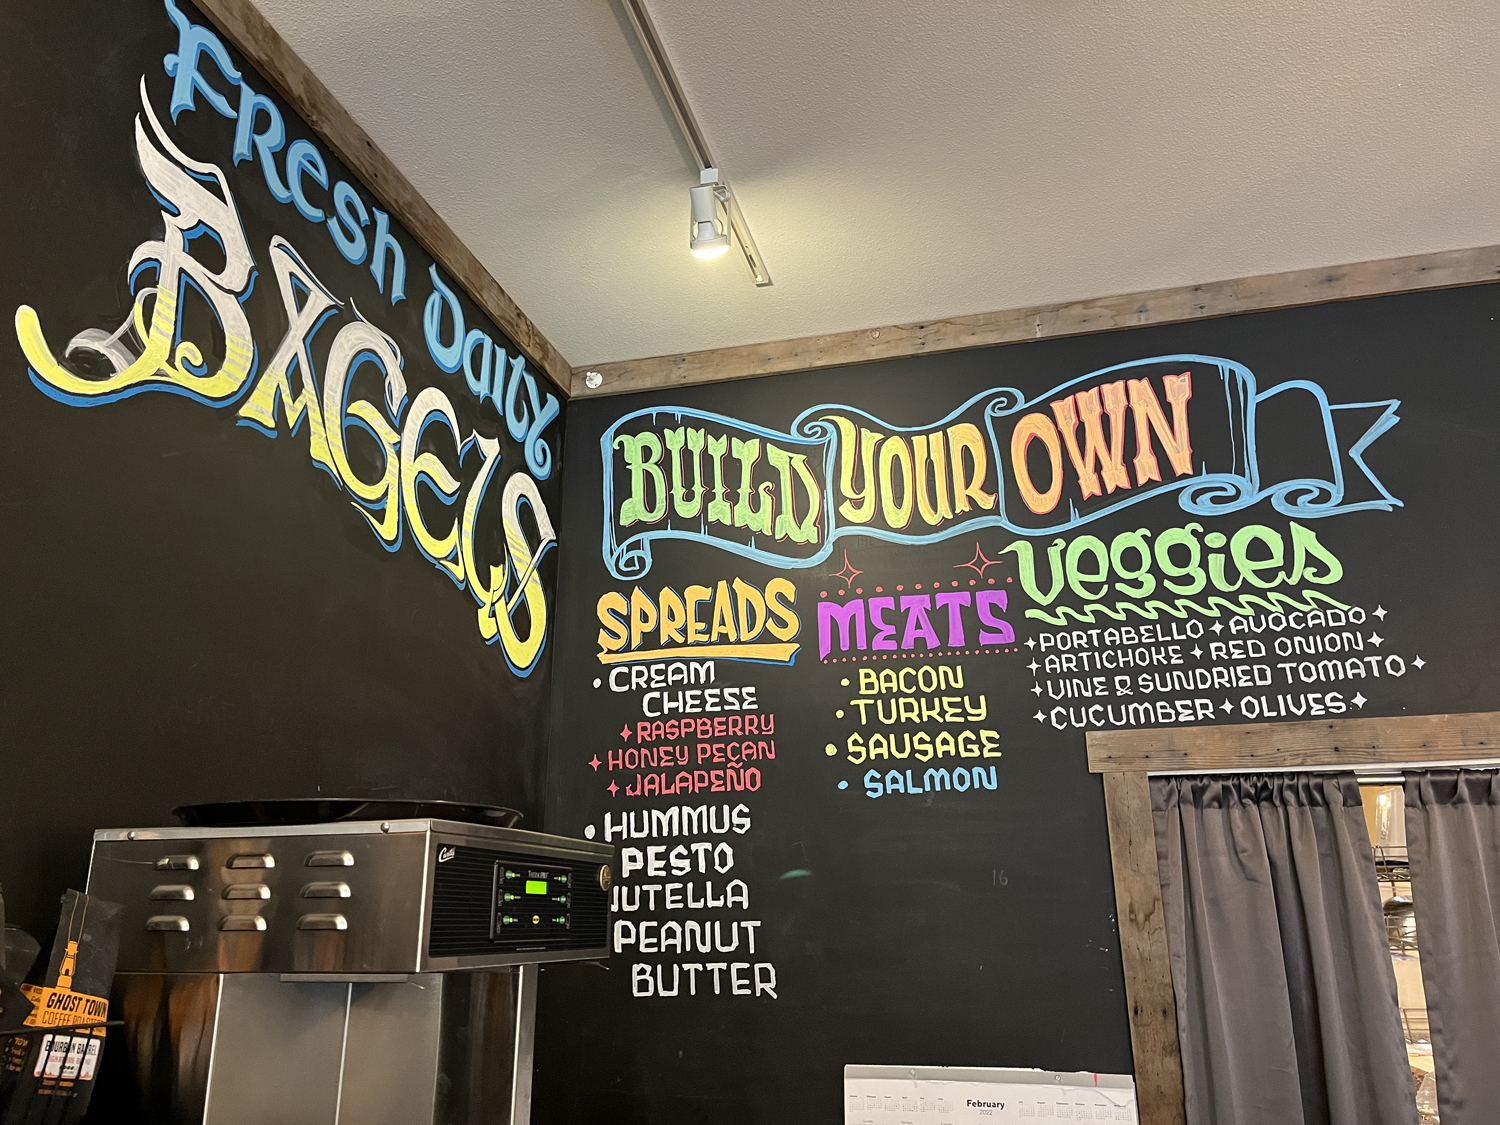 Fresh Daily
BAGELS
BUILD YOUR OWN
SPREADS
• CREAM
CHEESE
✦ RASPBERRY
✦ HONEY PECAN
✦ JALAPEÑO
• HUMMUS
PESTO
NUTELLA
PEANUT
BUTTER
MEATS
• BACON
• TURKEY
• SAUSAGE
• SALMON
Veggies
✦ PORTABELLO ✦ AVOCADO ✦
✦ ARTICHOKE ✦ RED ONION ✦
✦ VINE & SUNDRIED TOMATO ✦
✦ CUCUMBER ✦ OLIVES ✦
16
Curtis
GHOST TOWN
COFFEE ROASTERS
BOURBON BARREL
February
2022